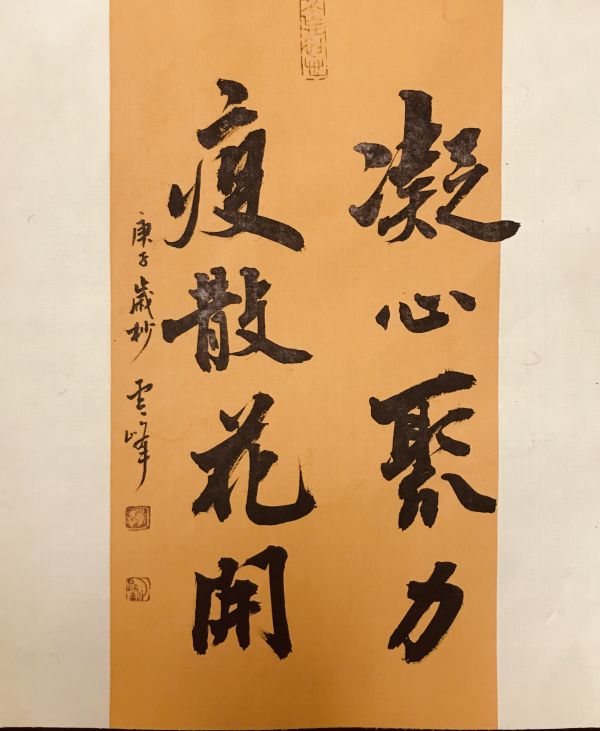 凝心聚力
疫散花開
庚子歲杪 雲峰